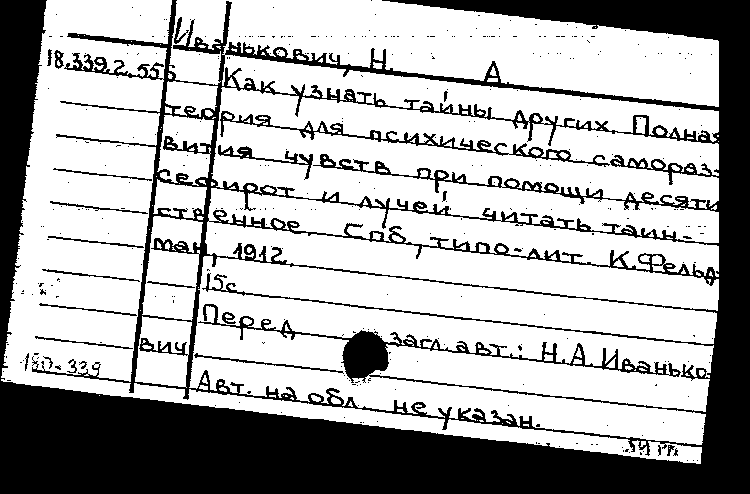 Иванькович, Н. А.
18.339.2.556
Как узнать тайны других. Полная
теория для психического самораз-
вития чувств при помощи десяти
сефирот и лучей читать таин-
ственное. Спб., типо-лит. К. Фельд-
ман, 1912.
15с.
Перед загл. авт.: Н.А. Иванько-
вич.
Авт. на обл. не указан.
180-339